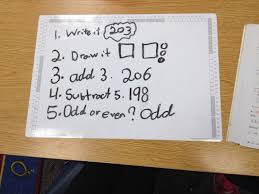 1. Write it 203
2. Draw it
3. add 3. 206
4. Subtract 5. 198
5. Odd or even? Odd